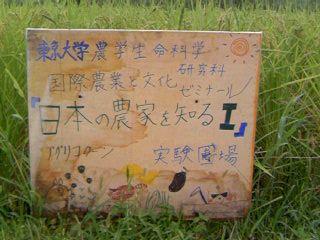 東京大学農学生命科学
研究科
国際農業と文化ゼミナール
『日本の農家を知るI』
アグリコクーン
実験圃場